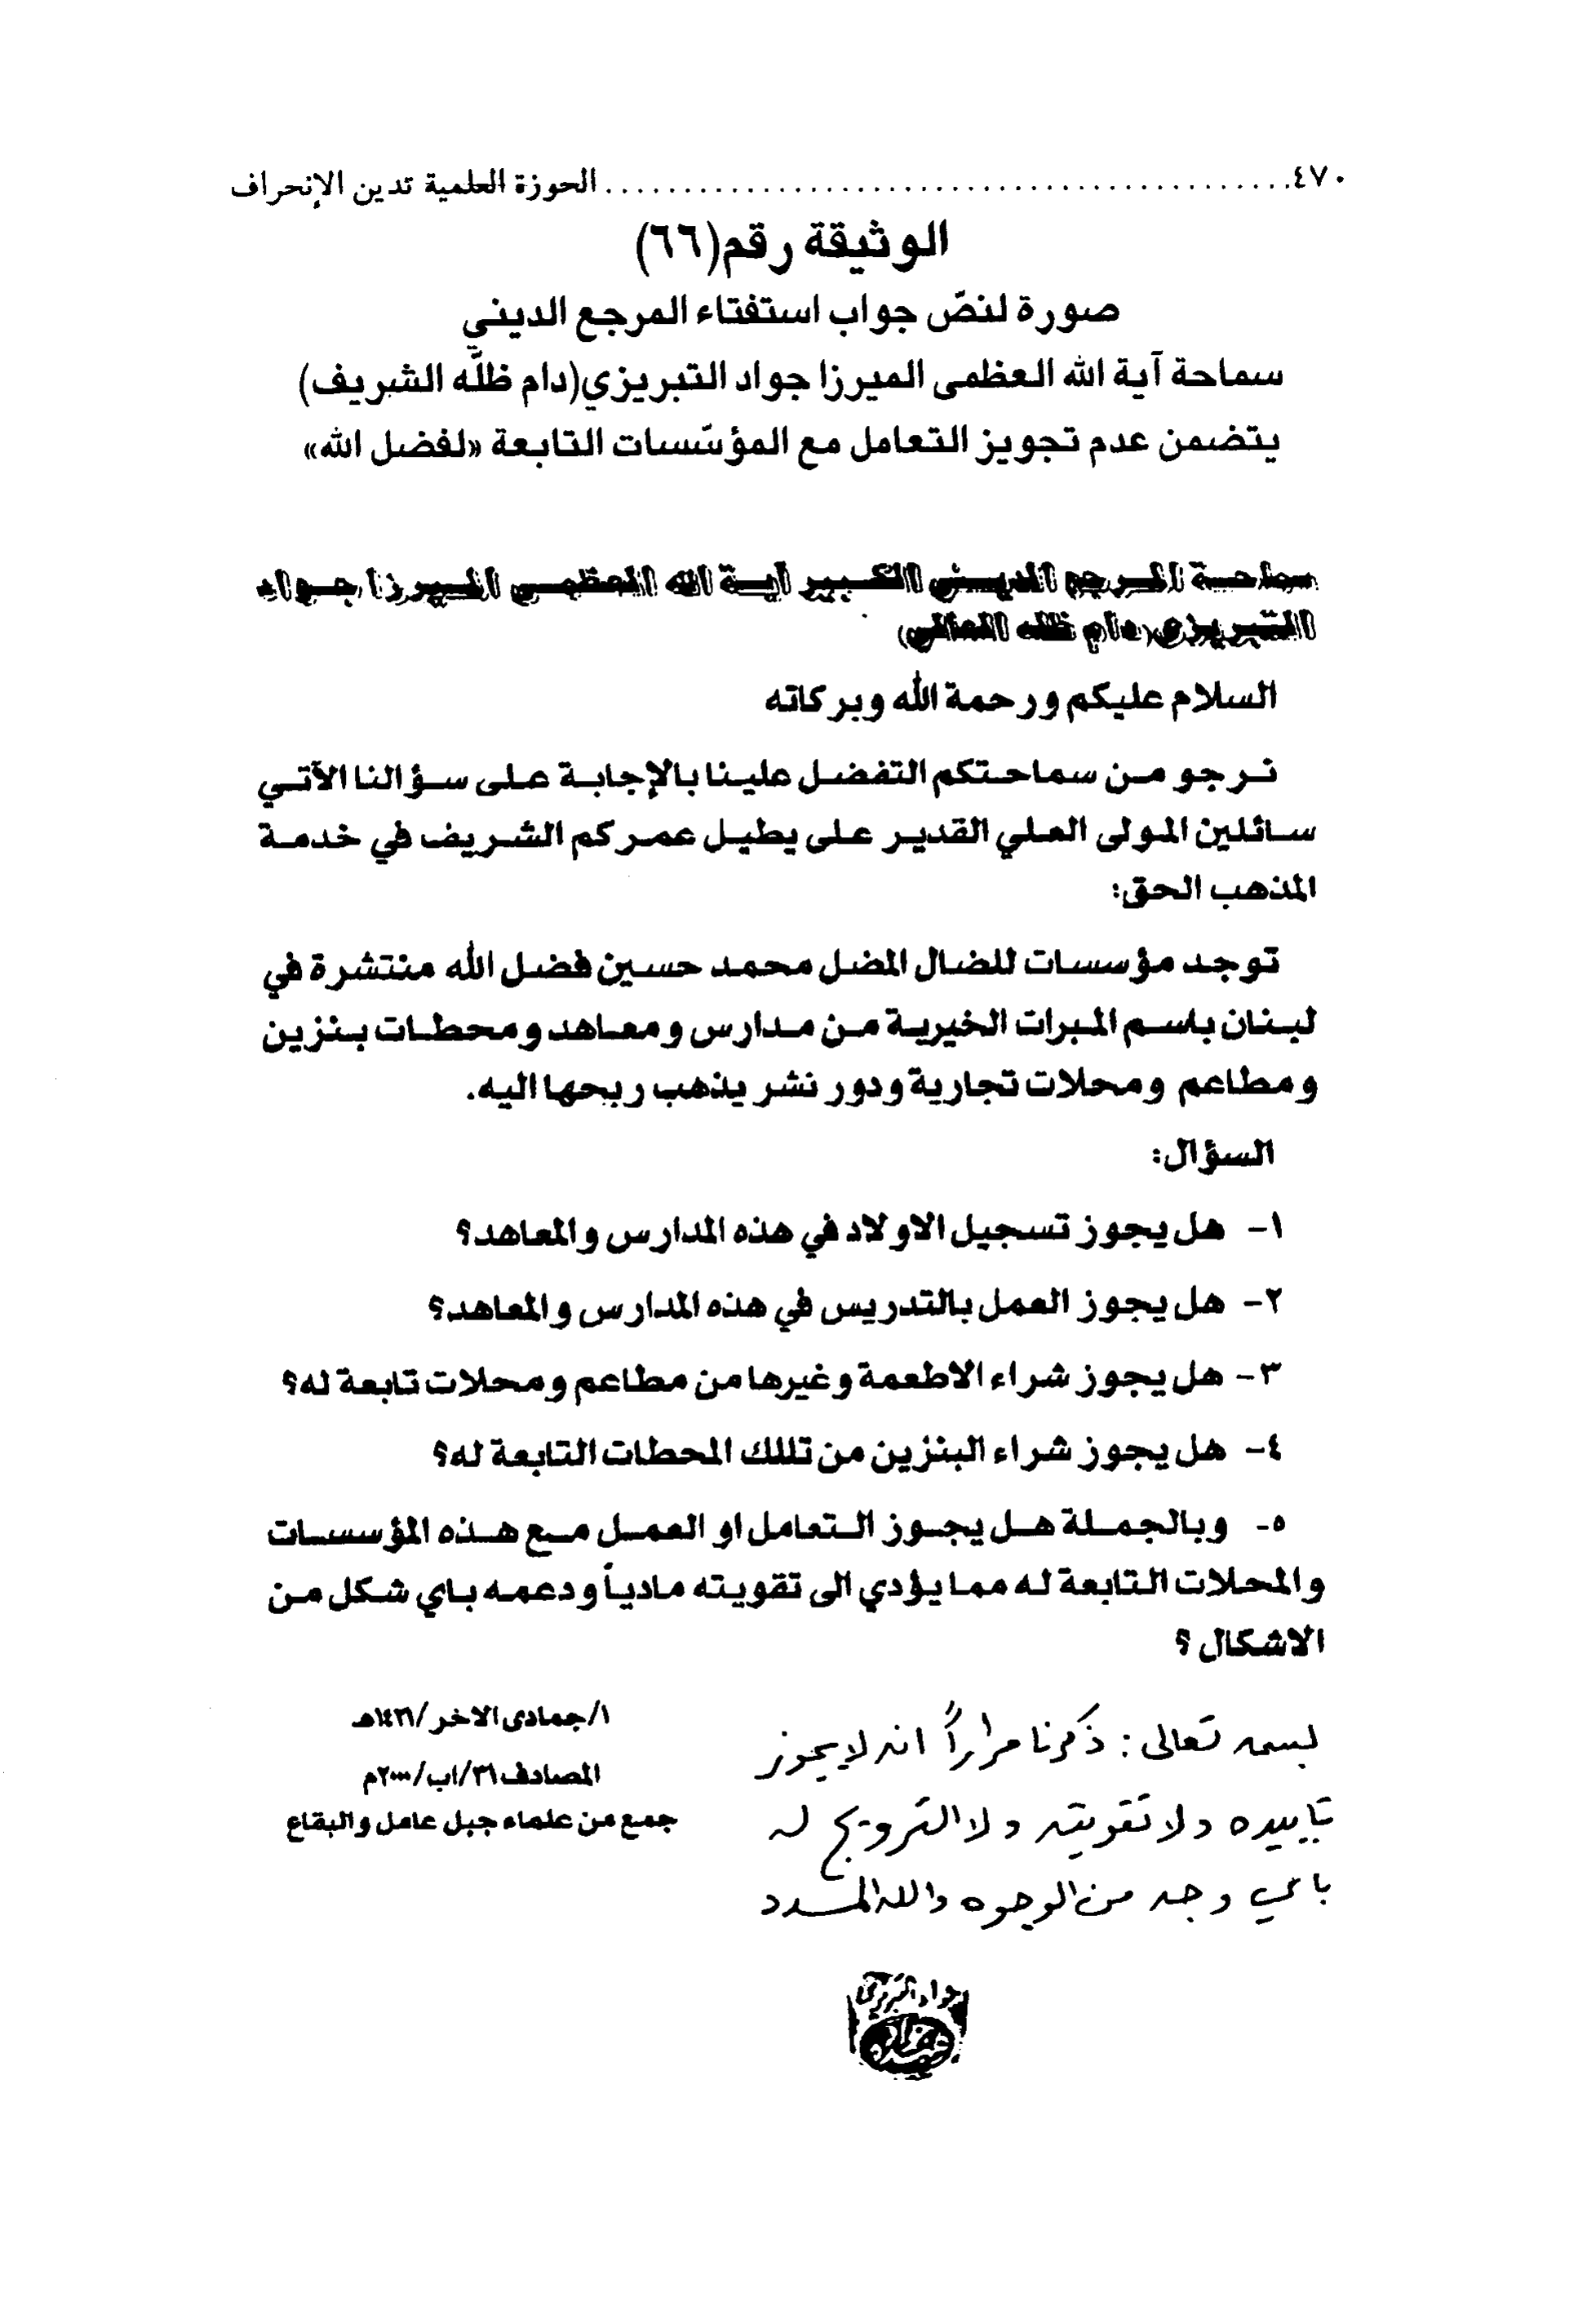 ٤٧٠ ........................................... الحوزة العلمية تدين الإنحراف
الوثيقة رقم(٦٦)
صورة لنصّ جواب استفتاء المرجع الديني
سماحة آية الله العظمى الميرزا جواد التبريزي(دام ظلّه الشريف)
يتضمن عدم تجويز التعامل مع المؤسّسات التابعة «لفضل الله»
سماحة المرجع الديني الكبير آية الله العظمى الميرزا جواد
التبريزي(دام ظله العالي)
السلام عليكم ورحمة الله وبركاته
نرجو من سماحتكم التفضل علينا بالإجابة على سؤالنا الآتي
سائلين المولى العلي القدير على يطيل عمركم الشريف في خدمة
المذهب الحق:
توجد مؤسسات للضال المضل محمد حسين فضل الله منتشرة في
لبنان باسم المبرات الخيرية من مدارس ومعاهد ومحطات بنزين
ومطاعم ومحلات تجارية ودور نشر يذهب ربحها اليه.
السؤال:
١- هل يجوز تسجيل الاولاد في هذه المدارس والمعاهد؟
٢- هل يجوز العمل بالتدريس في هذه المدارس والمعاهد؟
٣- هل يجوز شراء الاطعمة وغيرها من مطاعم ومحلات تابعة له؟
٤- هل يجوز شراء البنزين من تللك المحطات التابعة له؟
٥- وبالجملة هل يجوز التعامل او العمل مع هذه المؤسسات
والمحلات التابعة له مما يؤدي الى تقويته مادياً ودعمه باي شكل من
الاشكال ؟
١/جمادى الاخر/١٤٢١هـ
المصادف ٣١/اب/٢٠٠٠م
جمع من علماء جبل عامل والبقاع
بسمه تعالى : ذكرنا مراراً انه لا يجوز
تاييده ولا تقويته ولا الترويج له
باي وجه من الوجوه والله المسدد
جواد التبريزي